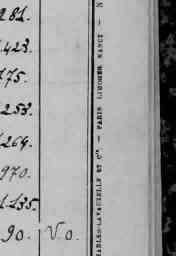 281.
423.
175.
253.
1.264.
970.
1.135.
90. V.o.
HARLES-LAVAUZELLE ET Cie. — PARIS LIMOGES NANCY. — N